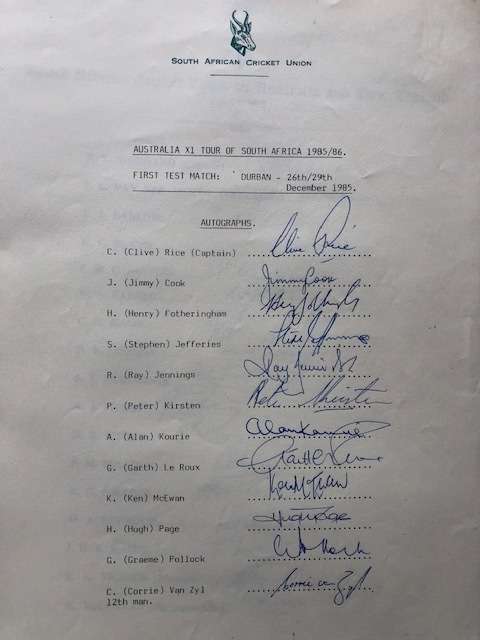 SOUTH AFRICAN CRICKET UNION
AUSTRALIA X1 TOUR OF SOUTH AFRICA 1985/86.
FIRST TEST MATCH: DURBAN - 26th/29th
December 1985.
AUTOGRAPHS.
C. (Clive) Rice (Captain) Clive Rice
J. (Jimmy) Cook Jimmy Cook
H. (Henry) Fotheringham
S. (Stephen) Jefferies
R. (Ray) Jennings Ray Jennings
P. (Peter) Kirsten Peter Kirsten
A. (Alan) Kourie Alan Kourie
G. (Garth) Le Roux Garth Le Roux
K. (Ken) McEwan Ken McEwan
H. (Hugh) Page Hugh Page
G. (Graeme) Pollock
C. (Corrie) Van Zyl Corrie van Zyl
12th man.